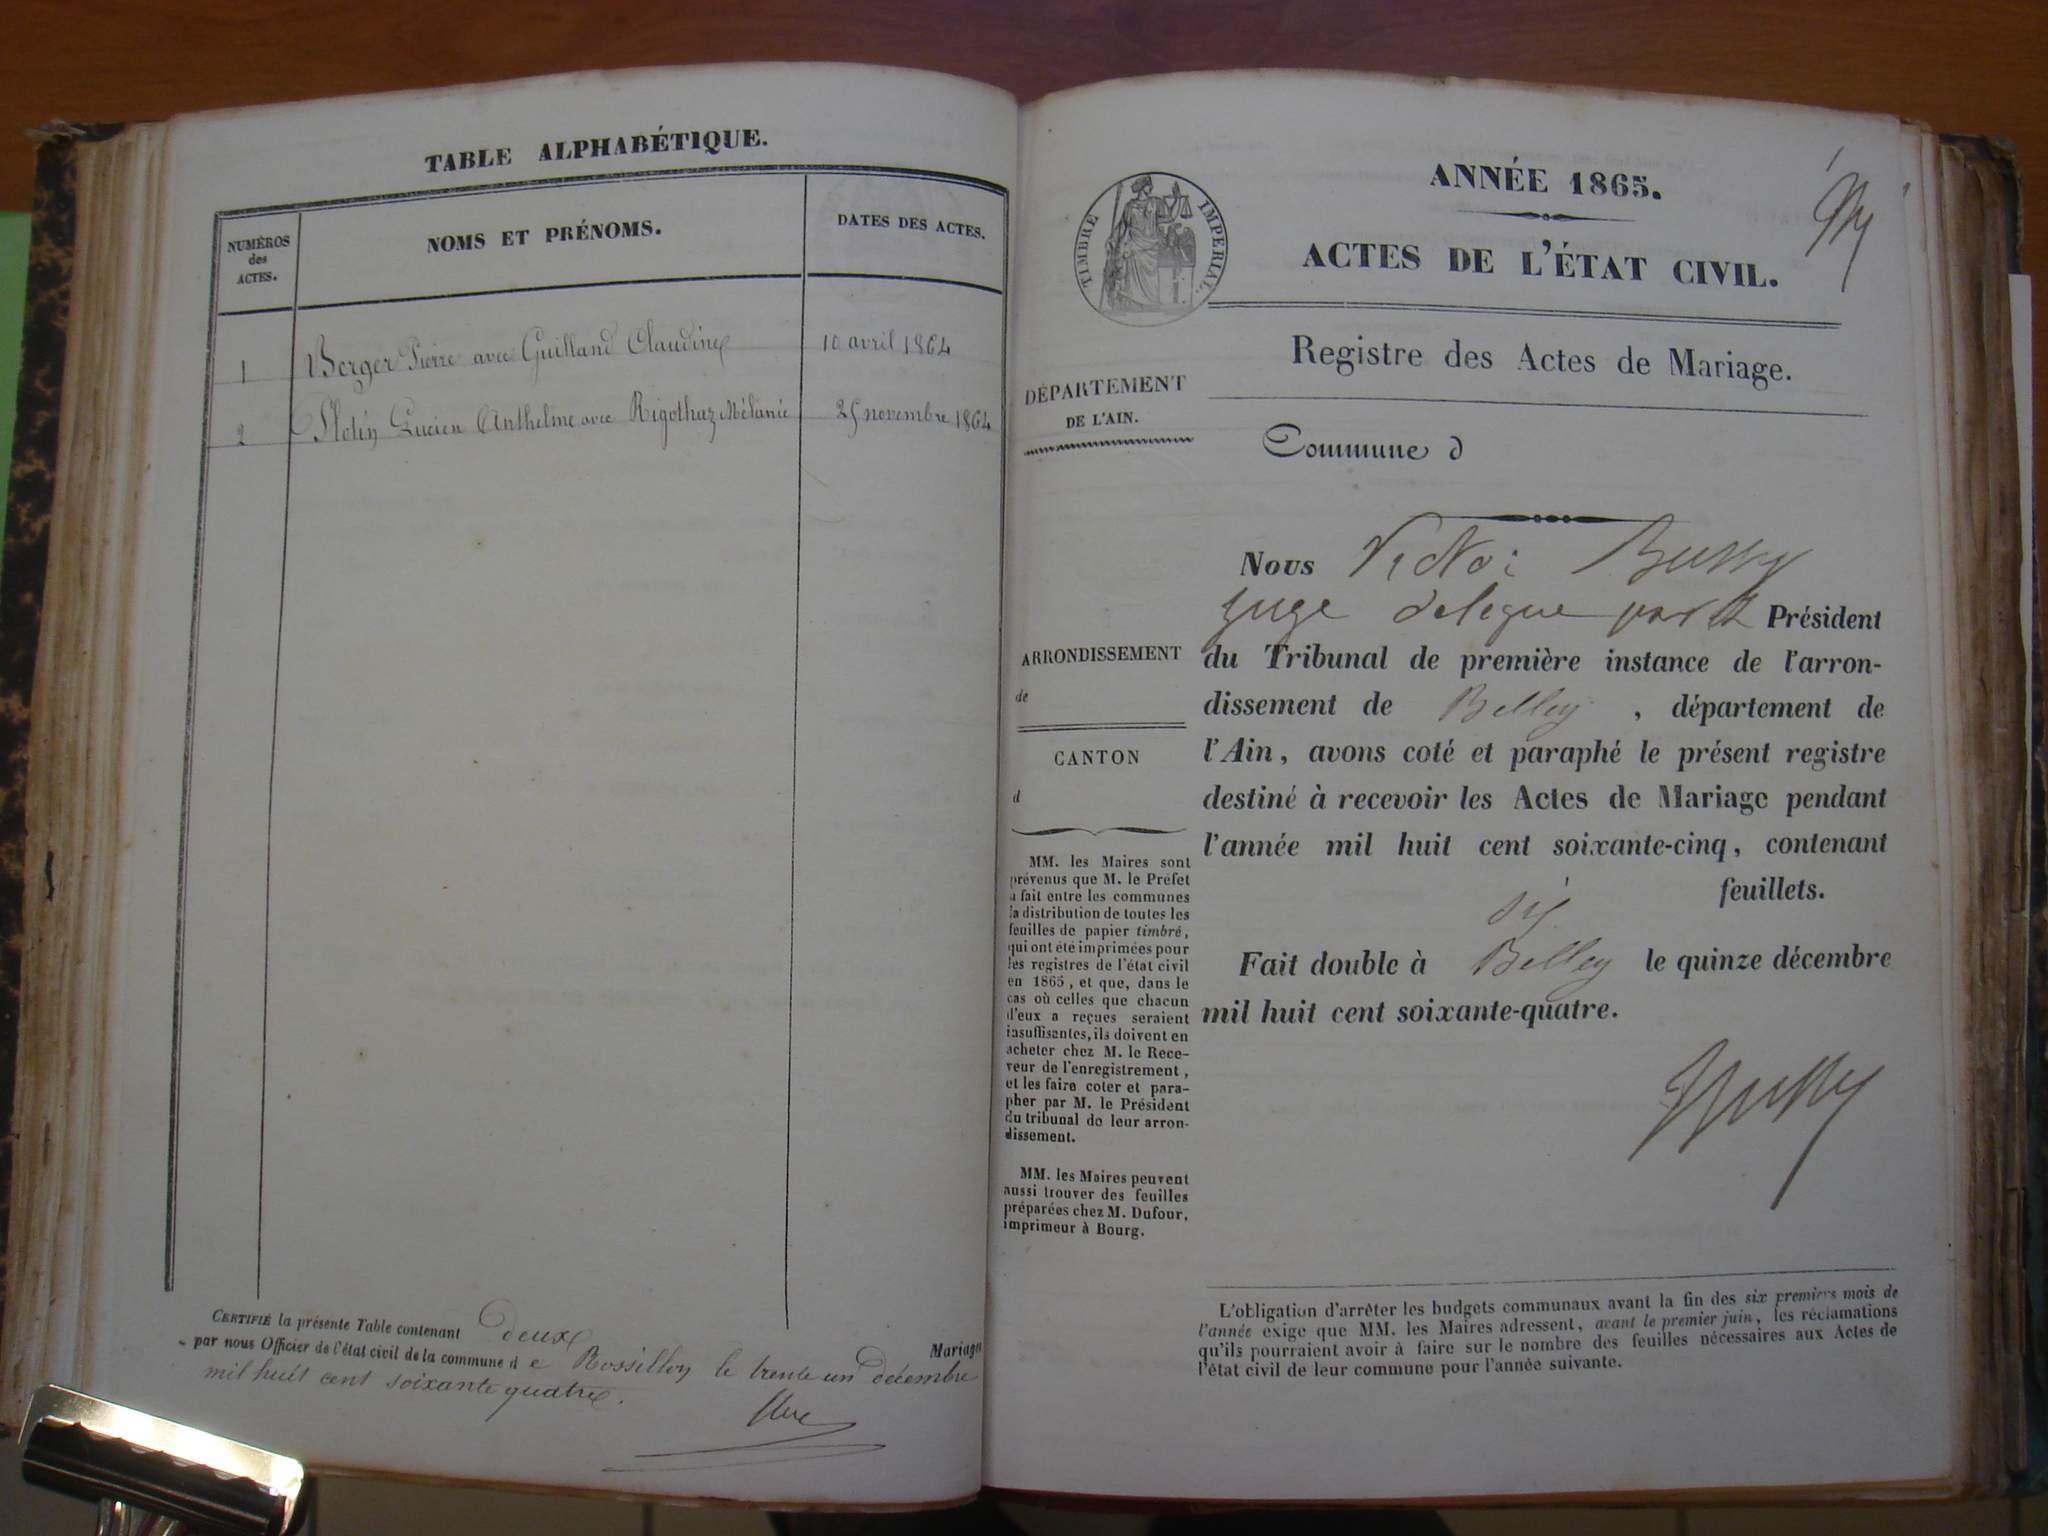 TABLE ALPHABÉTIQUE.
NUMÉROS
des
ACTES.
NOMS ET PRÉNOMS.
DATES DES ACTES.
1 Berger Pierre avec Guilland Claudine 10 avril 1864
2 Lucien Anthelme avec Rigothaz Mélanie 25 novembre 1864
CERTIFIÉ la présente Table contenant deux Mariages
par nous Officier de l'état civil de la commune de Rossillon le trente un décembre
mil huit cent soixante quatre.
TIMBRE IMPERIAL.
ANNÉE 1865.
ACTES DE L'ÉTAT CIVIL.
Registre des Actes de Mariage.
DÉPARTEMENT
DE L'AIN.
Commune d
ARRONDISSEMENT
de
CANTON
d
MM. les Maires sont
prévenus que M. le Préfet
a fait entre les communes
la distribution de toutes les
feuilles de papier timbré,
qui ont été imprimées pour
les registres de l'état civil
en 1865, et que, dans le
cas où celles que chacun
d'eux a reçues seraient
insuffisantes, ils doivent en
acheter chez M. le Rece-
veur de l'enregistrement,
et les faire coter et para-
pher par M. le Président
du tribunal de leur arron-
dissement.
MM. les Maires peuvent
aussi trouver des feuilles
préparées chez M. Dufour,
imprimeur à Bourg.
Nous Victor Bussy
juge délégué par le Président
du Tribunal de première instance de l'arron-
dissement de Belley, département de
l'Ain, avons coté et paraphé le présent registre
destiné à recevoir les Actes de Mariage pendant
l'année mil huit cent soixante-cinq, contenant
six feuillets.
Fait double à Belley le quinze décembre
mil huit cent soixante-quatre.
Bussy
L'obligation d'arrêter les budgets communaux avant la fin des six premiers mois de
l'année exige que MM. les Maires adressent, avant le premier juin, les réclamations
qu'ils pourraient avoir à faire sur le nombre des feuilles nécessaires aux Actes de
l'état civil de leur commune pour l'année suivante.